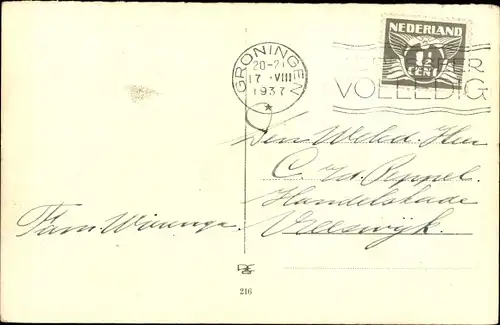 NEDERLAND
1½
CENT
GRONINGEN
20-21
17 · VIII
1937
VOLLEDIG
Den Weled. Heer
C. v.d. Peppel.
Handelskade
Vreeswijk.
Fam. Wieringa.
216